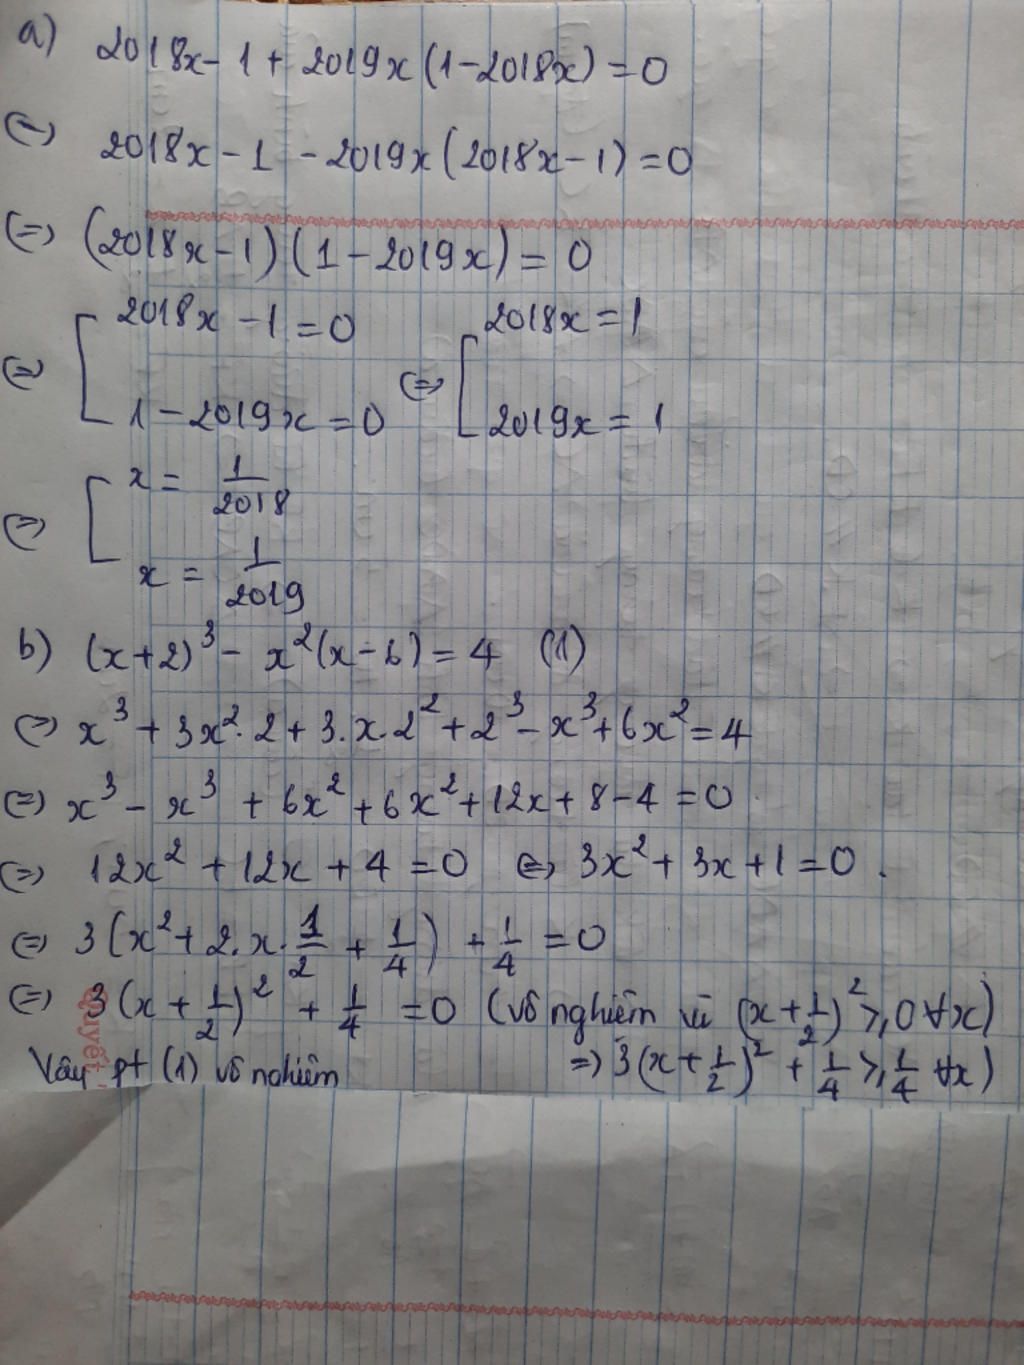 a) 2018x - 1 + 2019x (1 - 2018x) = 0
(=) 2018x - 1 - 2019x (2018x - 1) = 0
(=) (2018x - 1) (1 - 2019x) = 0
(=) [ 2018x - 1 = 0 (=) [ 2018x = 1
1 - 2019x = 0 2019x = 1
(=) [ x = 1/2018
x = 1/2019
b) (x+2)³ - x²(x-6) = 4 (1)
(=) x³ + 3x².2 + 3.x.2² + 2³ - x³ + 6x² = 4
(=) x³ - x³ + 6x² + 6x² + 12x + 8 - 4 = 0
(=) 12x² + 12x + 4 = 0 (=) 3x² + 3x + 1 = 0.
(=) 3(x² + 2.x.1/2 + 1/4) + 1/4 = 0
(=) 3(x + 1/2)² + 1/4 = 0 (vô nghiệm vì (x + 1/2)² ≥ 0 ∀x)
Vậy pt (1) vô nghiệm => 3(x + 1/2)² + 1/4 ≥ 1/4 ∀x)